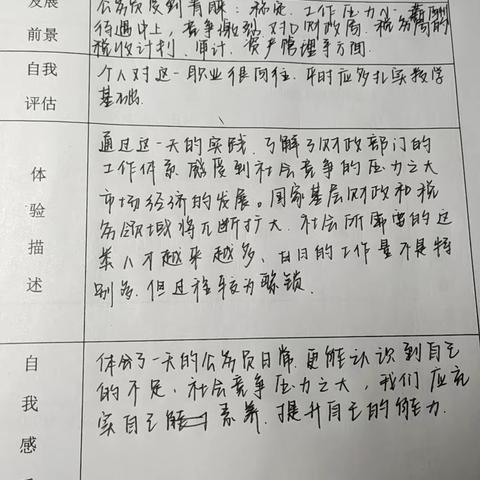 发展
前景
公务员受到青睐：稳定、工作压力小、薪酬
待遇中上，竞争激烈，对口财政局、税务局的
税收计划、审计、资产管理等方面.
自我
评估
个人对这一职业很向往，平时应多扎实数学
基础.
体
验
描
述
通过这一天的实践，了解了财政部门的
工作体系，感受到社会竞争的压力之大
市场经济的发展。国家基层财政和税
务领域将不断扩大，社会所需要的这
类人才越来越多、日日的工作量不是特
别多，但过程较为繁锁.
自
我
感
体会了一天的公务员日常，更能认识到自己
的不足、社会竞争压力之大，我们应充
实自己 素养，提升自己的能力.